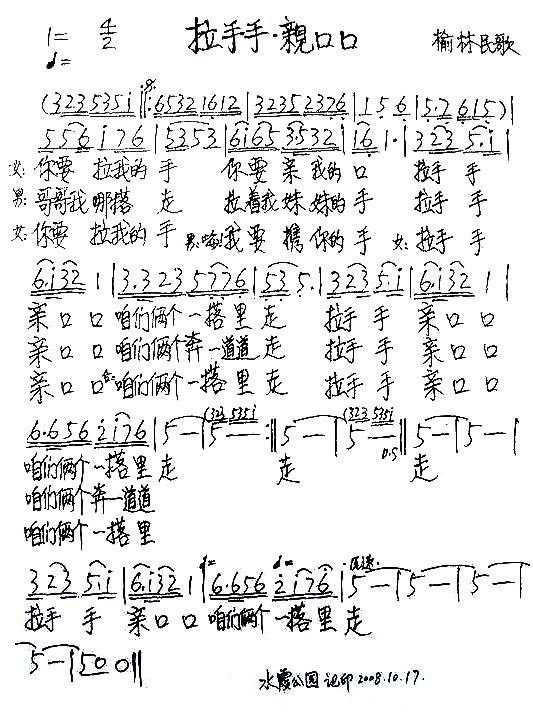 1= 4/2 拉手手·親口口 榆林民歌
♩=
(323535i ‖: 65321612 | 32352376 | 1 5 6 | 5·7 615) |
556 i76 | 5353 | 6i65 3532 | 16 1· | 323 5·i |
女: 你要 拉我的 手 你要 亲 我的 口 拉手 手
男: 哥哥我 哪搭 走 拉着我 妹妹的 手 拉手 手
女: 你要 拉我的 手 我要 携 你的 手 女: 拉手 手
6·i32 1 | 3·323 5776 | 53 5· | 323 5·i | 6·i32 1 |
亲口 口 咱们俩个 一搭里 走 拉手 手 亲口 口
亲口 口 咱们俩个奔 一道道 走 拉手 手 亲口 口
亲口 口 合: 咱们俩个 一搭里 走 拉手 手 亲口 口
(323 535i (323 535i
6·656 2i76 | 5 — | 5 — :‖ 5 — | 5 — ‖ 5 — | 5 — |
D.S
咱们俩个 一搭里 走 走 走
咱们俩个奔 一道道
咱们俩个 一搭里
323 5i | 6·i32 1 | 6·656 2i76 | 5 — | 5 — | 5 — |
拉手 手 亲口 口 咱们俩个 一搭里 走
5 — | 50 0 ‖
水霞公园 记印 2008.10.17.